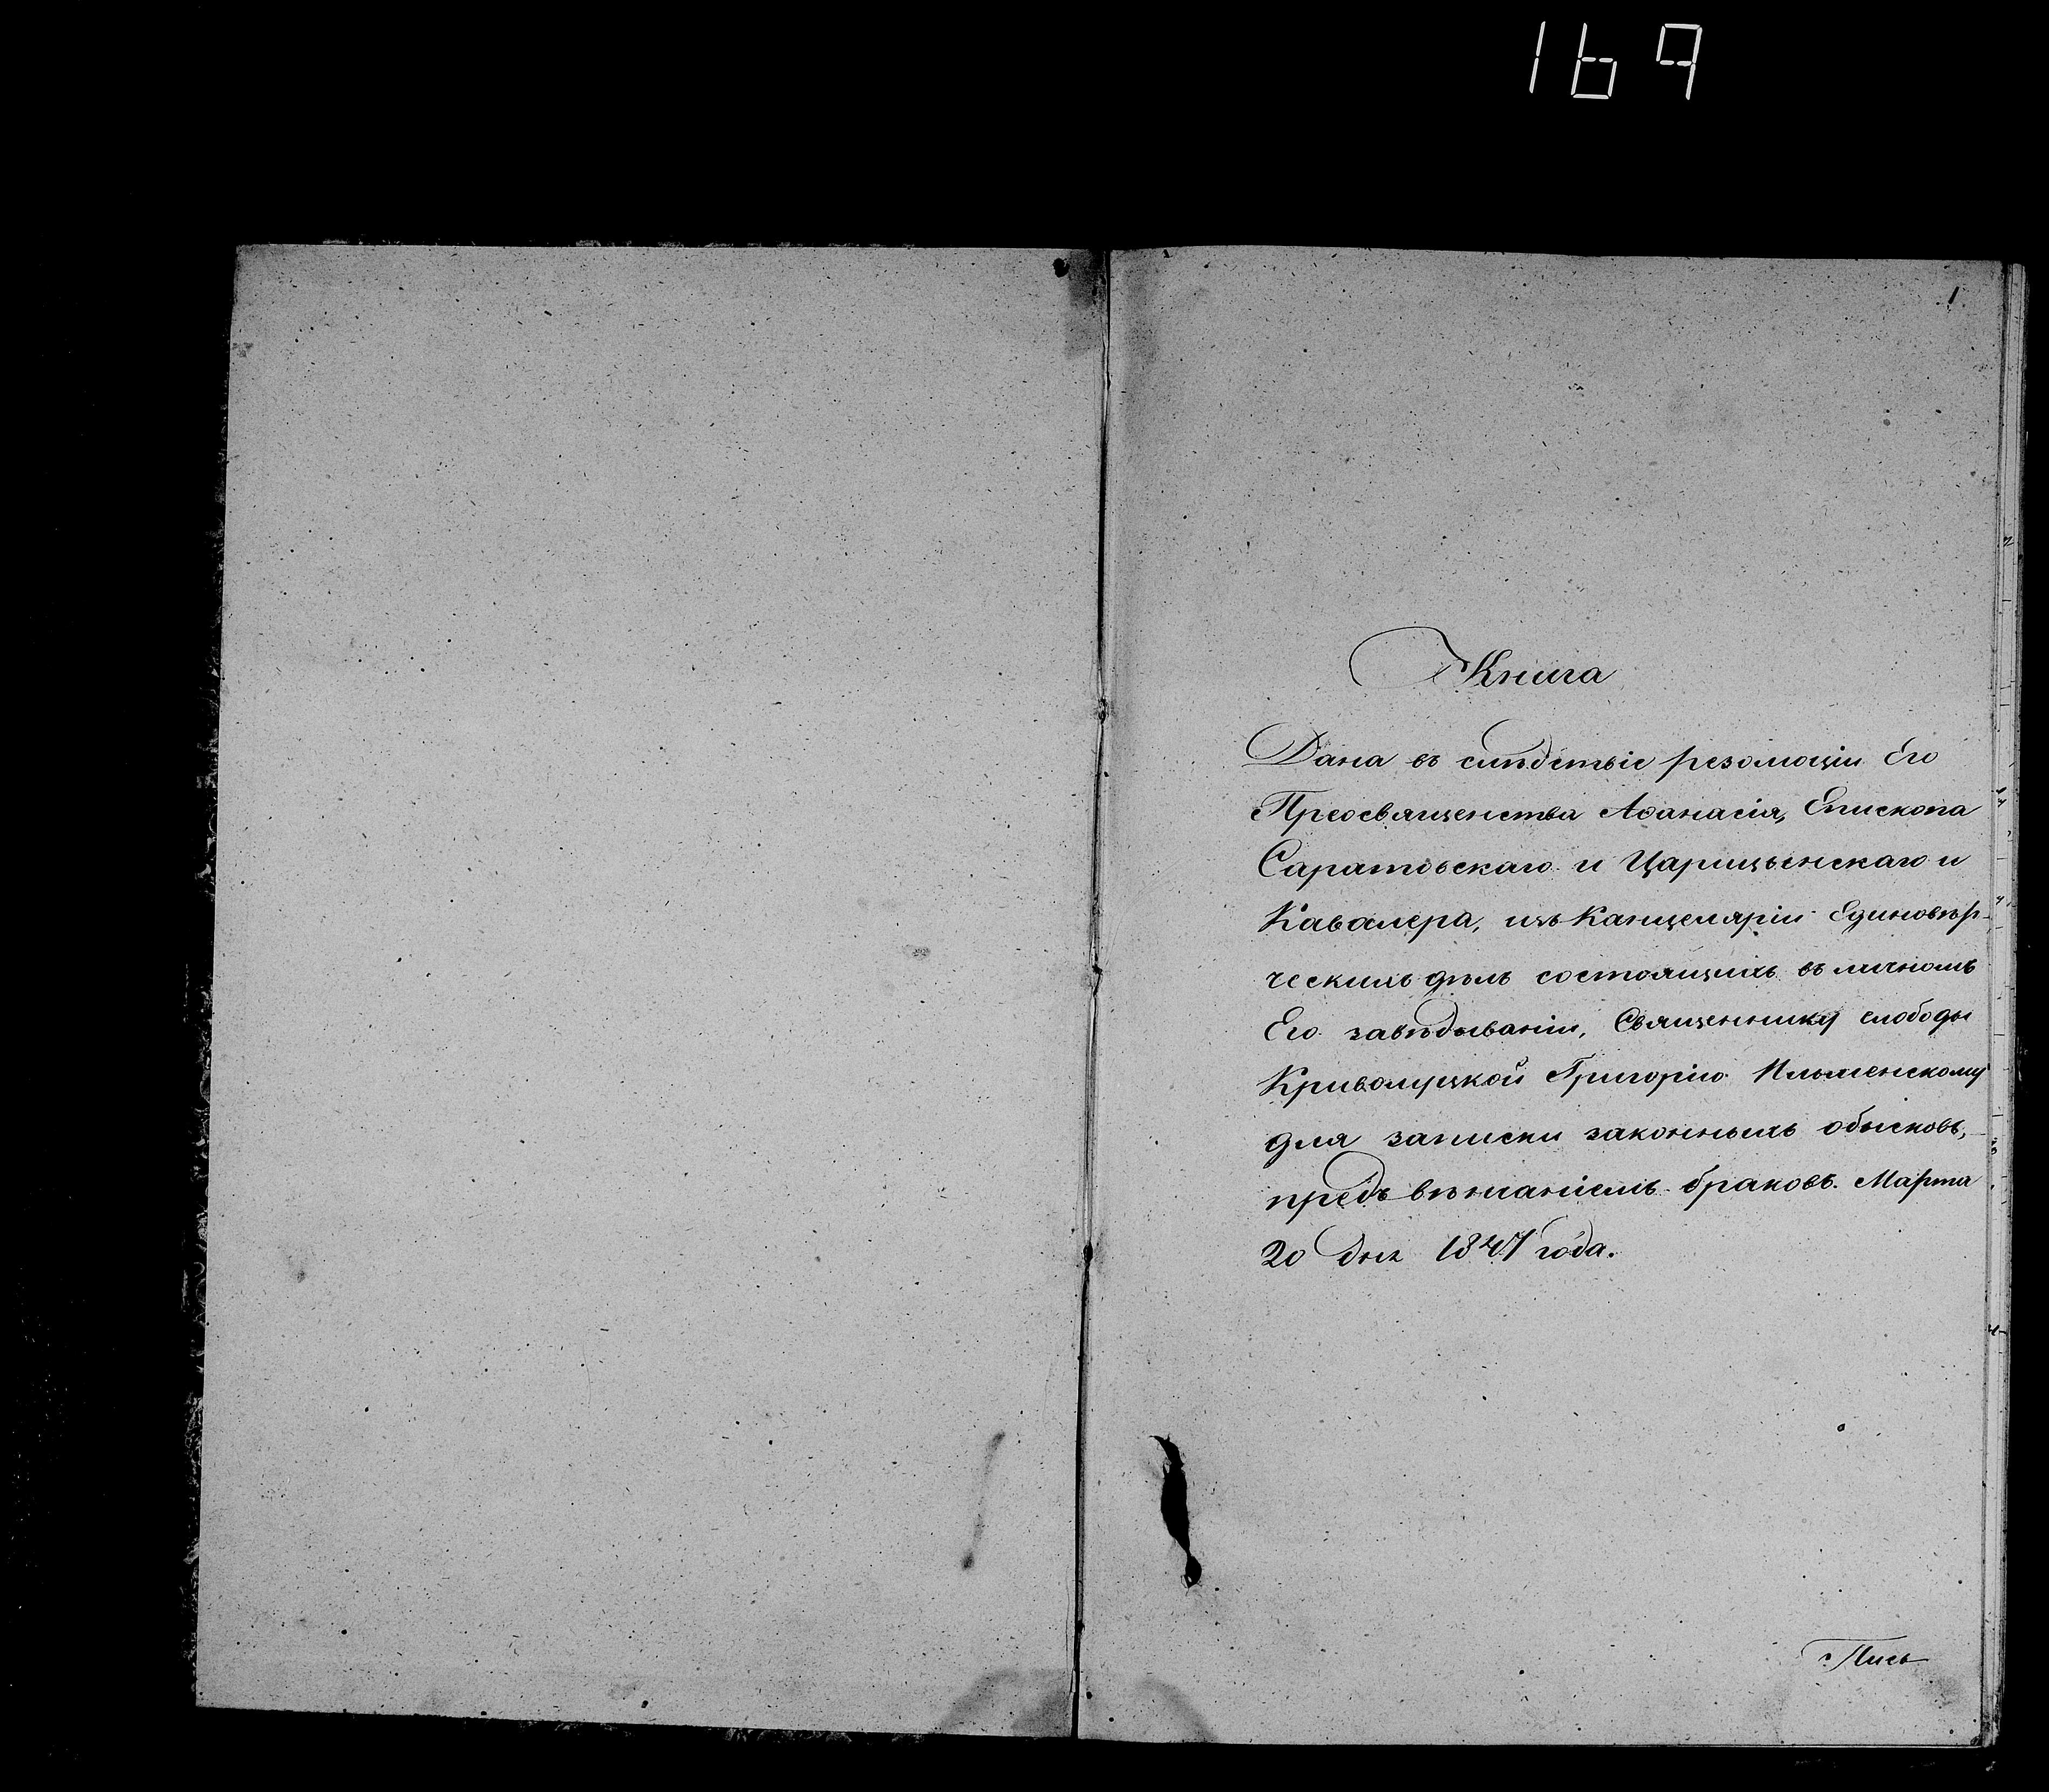 169
1
Книга
Дана въ слѣдствіе резолюціи Его
Преосвященства Аѳанасія, Епископа
Саратовскаго и Царицынскаго и
Кавалера, изъ Канцеляріи Единовѣр-
ческихъ дѣлъ состоящихъ въ личномъ
Его завѣдываніи, Священнику слободы
Криволуцкой Григорію Ильменскому
для записки законныхъ обысковъ,
предъ вѣнчаніемъ браковъ. Марта
20 дня 1847 года.